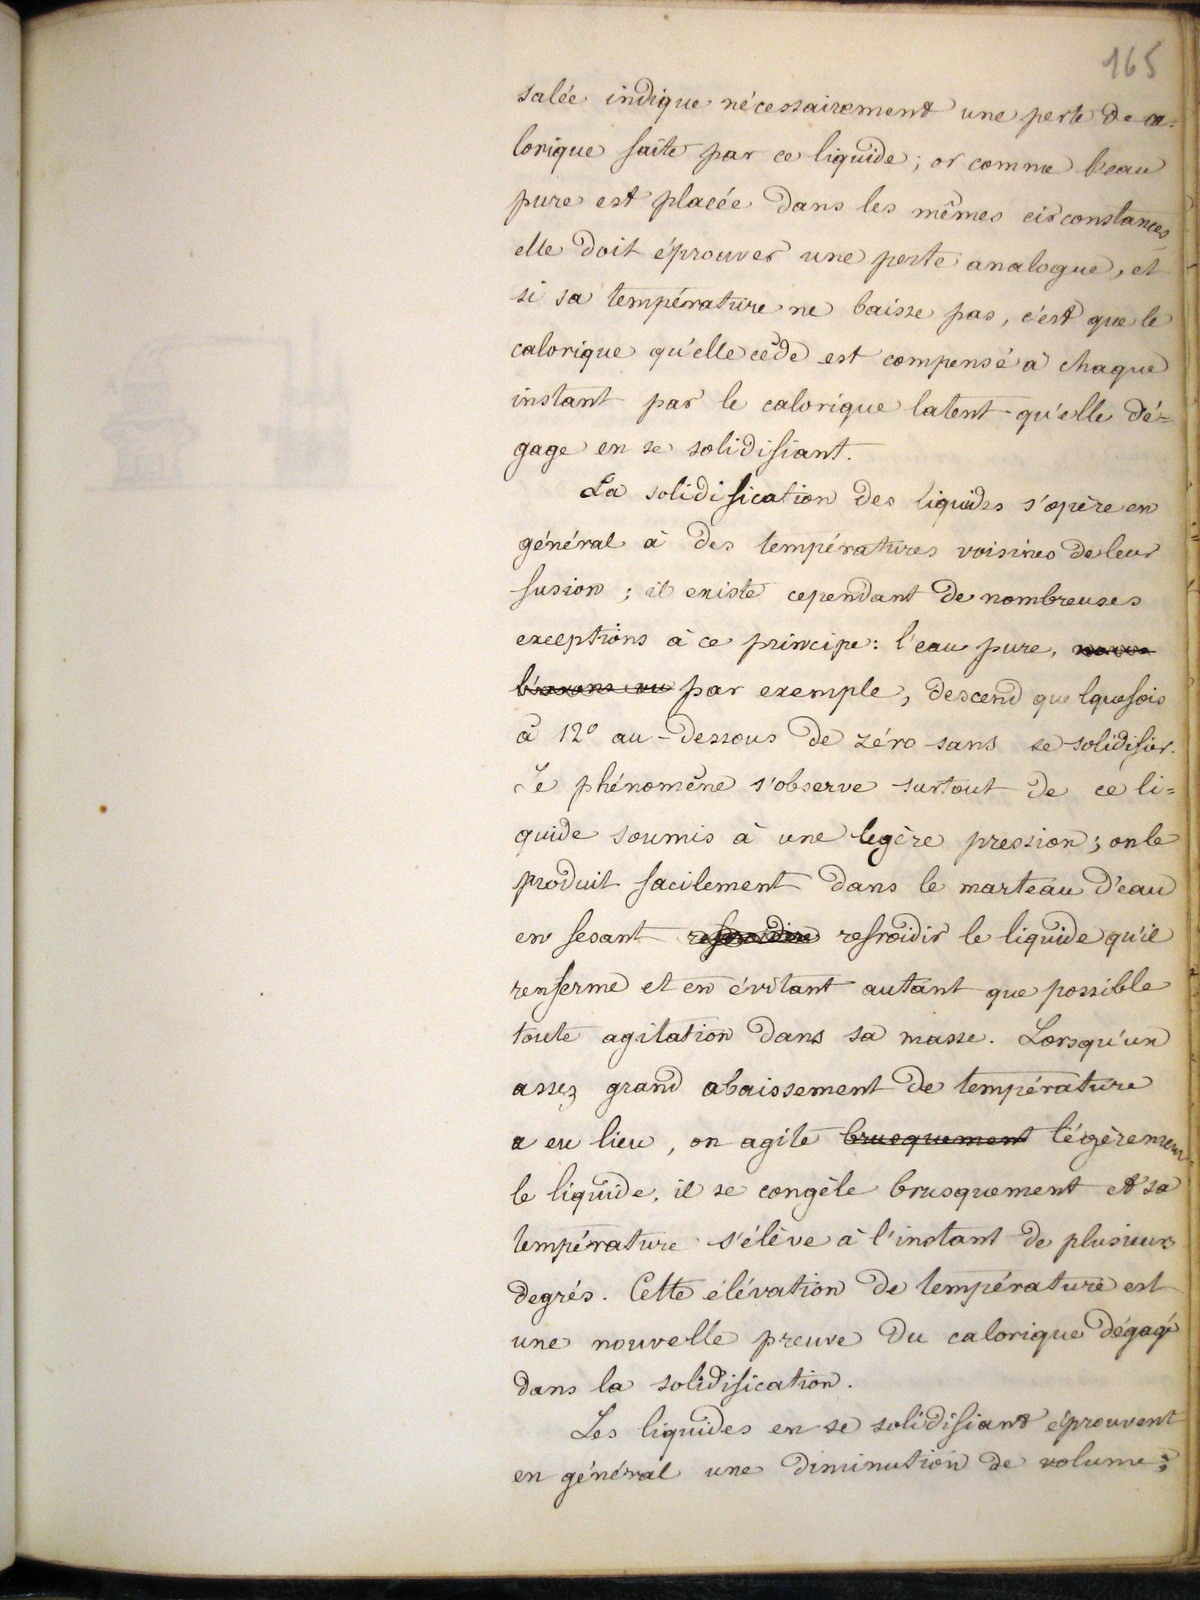 165
salée indique nécessairement une perte de ca=
lorique faite par ce liquide; or comme l'eau
pure est placée dans les mêmes circonstances
elle doit éprouver une perte analogue, et
si sa température ne baisse pas, c'est que le
calorique qu'elle cède est compensé à chaque
instant par le calorique latent qu'elle dé=
gage en se solidifiant.
La solidification des liquides s'opère en
général à des températures voisines de leur
fusion; il existe cependant de nombreuses
exceptions à ce principe: l'eau pure, nous
l'avons vu par exemple, descend quelquefois
à 12° au-dessous de zéro sans se solidifier.
Le phénomène s'observe surtout de ce li=
quide soumis à une legère pression; on le
produit facilement dans le marteau d'eau
en fesant refroidir le liquide qu'il
renferme et en évitant autant que possible
toute agitation dans sa masse. Lorsqu'un
assez grand abaissement de température
a eu lieu, on agite brusquement légèrement
le liquide, il se congèle brusquement et sa
température s'élève à l'instant de plusieurs
degrés. Cette élévation de température est
une nouvelle preuve du calorique dégagé
dans la solidification.
Les liquides en se solidifiant éprouvent
en général une diminution de volume;